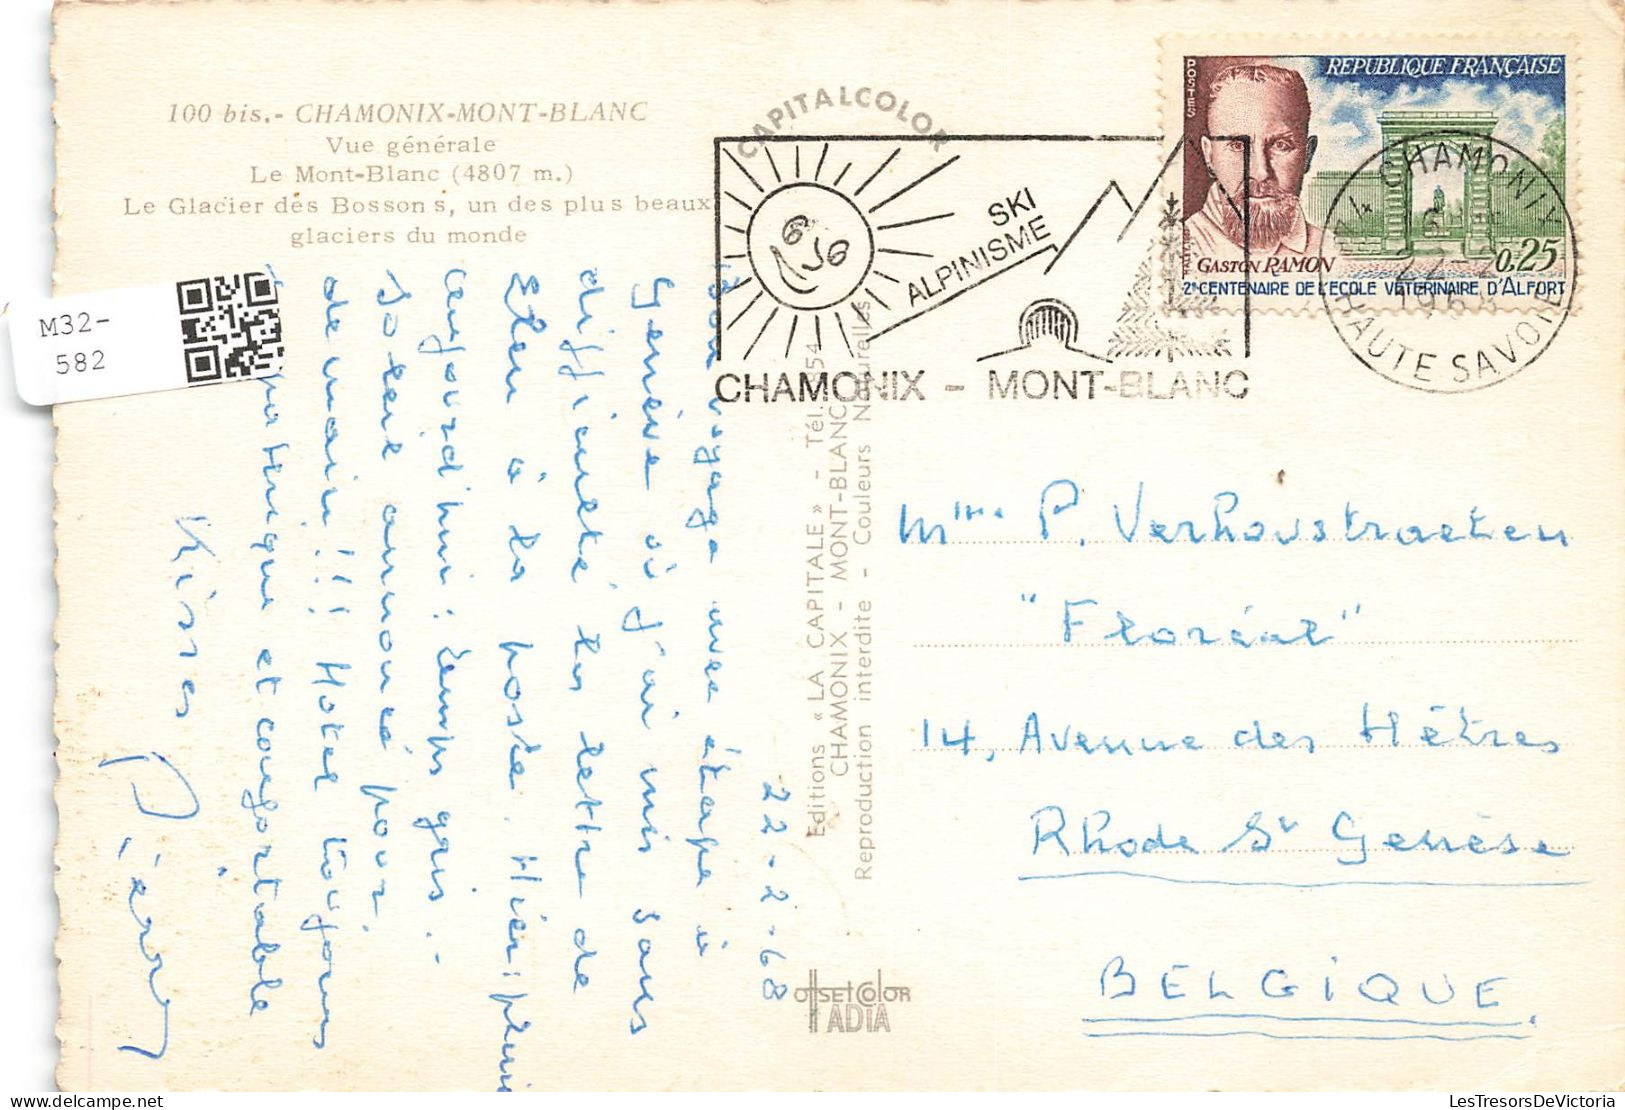 100 bis.- CHAMONIX-MONT-BLANC
Vue générale
Le Mont-Blanc (4807 m.)
Le Glacier des Bossons, un des plus beaux
glaciers du monde
M32-
582
CAPITALCOLOR
SKI
ALPINISME
CHAMONIX - MONT-BLANC
POSTES
REPUBLIQUE FRANÇAISE
GASTON RAMON
0,25
2e CENTENAIRE DE L'ECOLE VETERINAIRE D'ALFORT
CHAMONIX
22-2
1968
HAUTE SAVOIE
22-2-68
Bon voyage avec étape à
Genève où j'ai mis sans
difficulté la lettre de
à la poste. Hier: pluie
aujourd'hui: temps gris.-
Soleil annoncé pour
demain!!! Hotel toujours
et confortable
Kisses
Pierre
Editions «LA CAPITALE» - Tél. 354
CHAMONIX - MONT-BLANC
Reproduction interdite - Couleurs Naturelles
OFFSET COLOR
ADIA
Mme P. Verhoustraeten
"Floréal"
14, Avenue des Hêtres
Rhode St Genèse
BELGIQUE.
LesTresorsDeVictoria